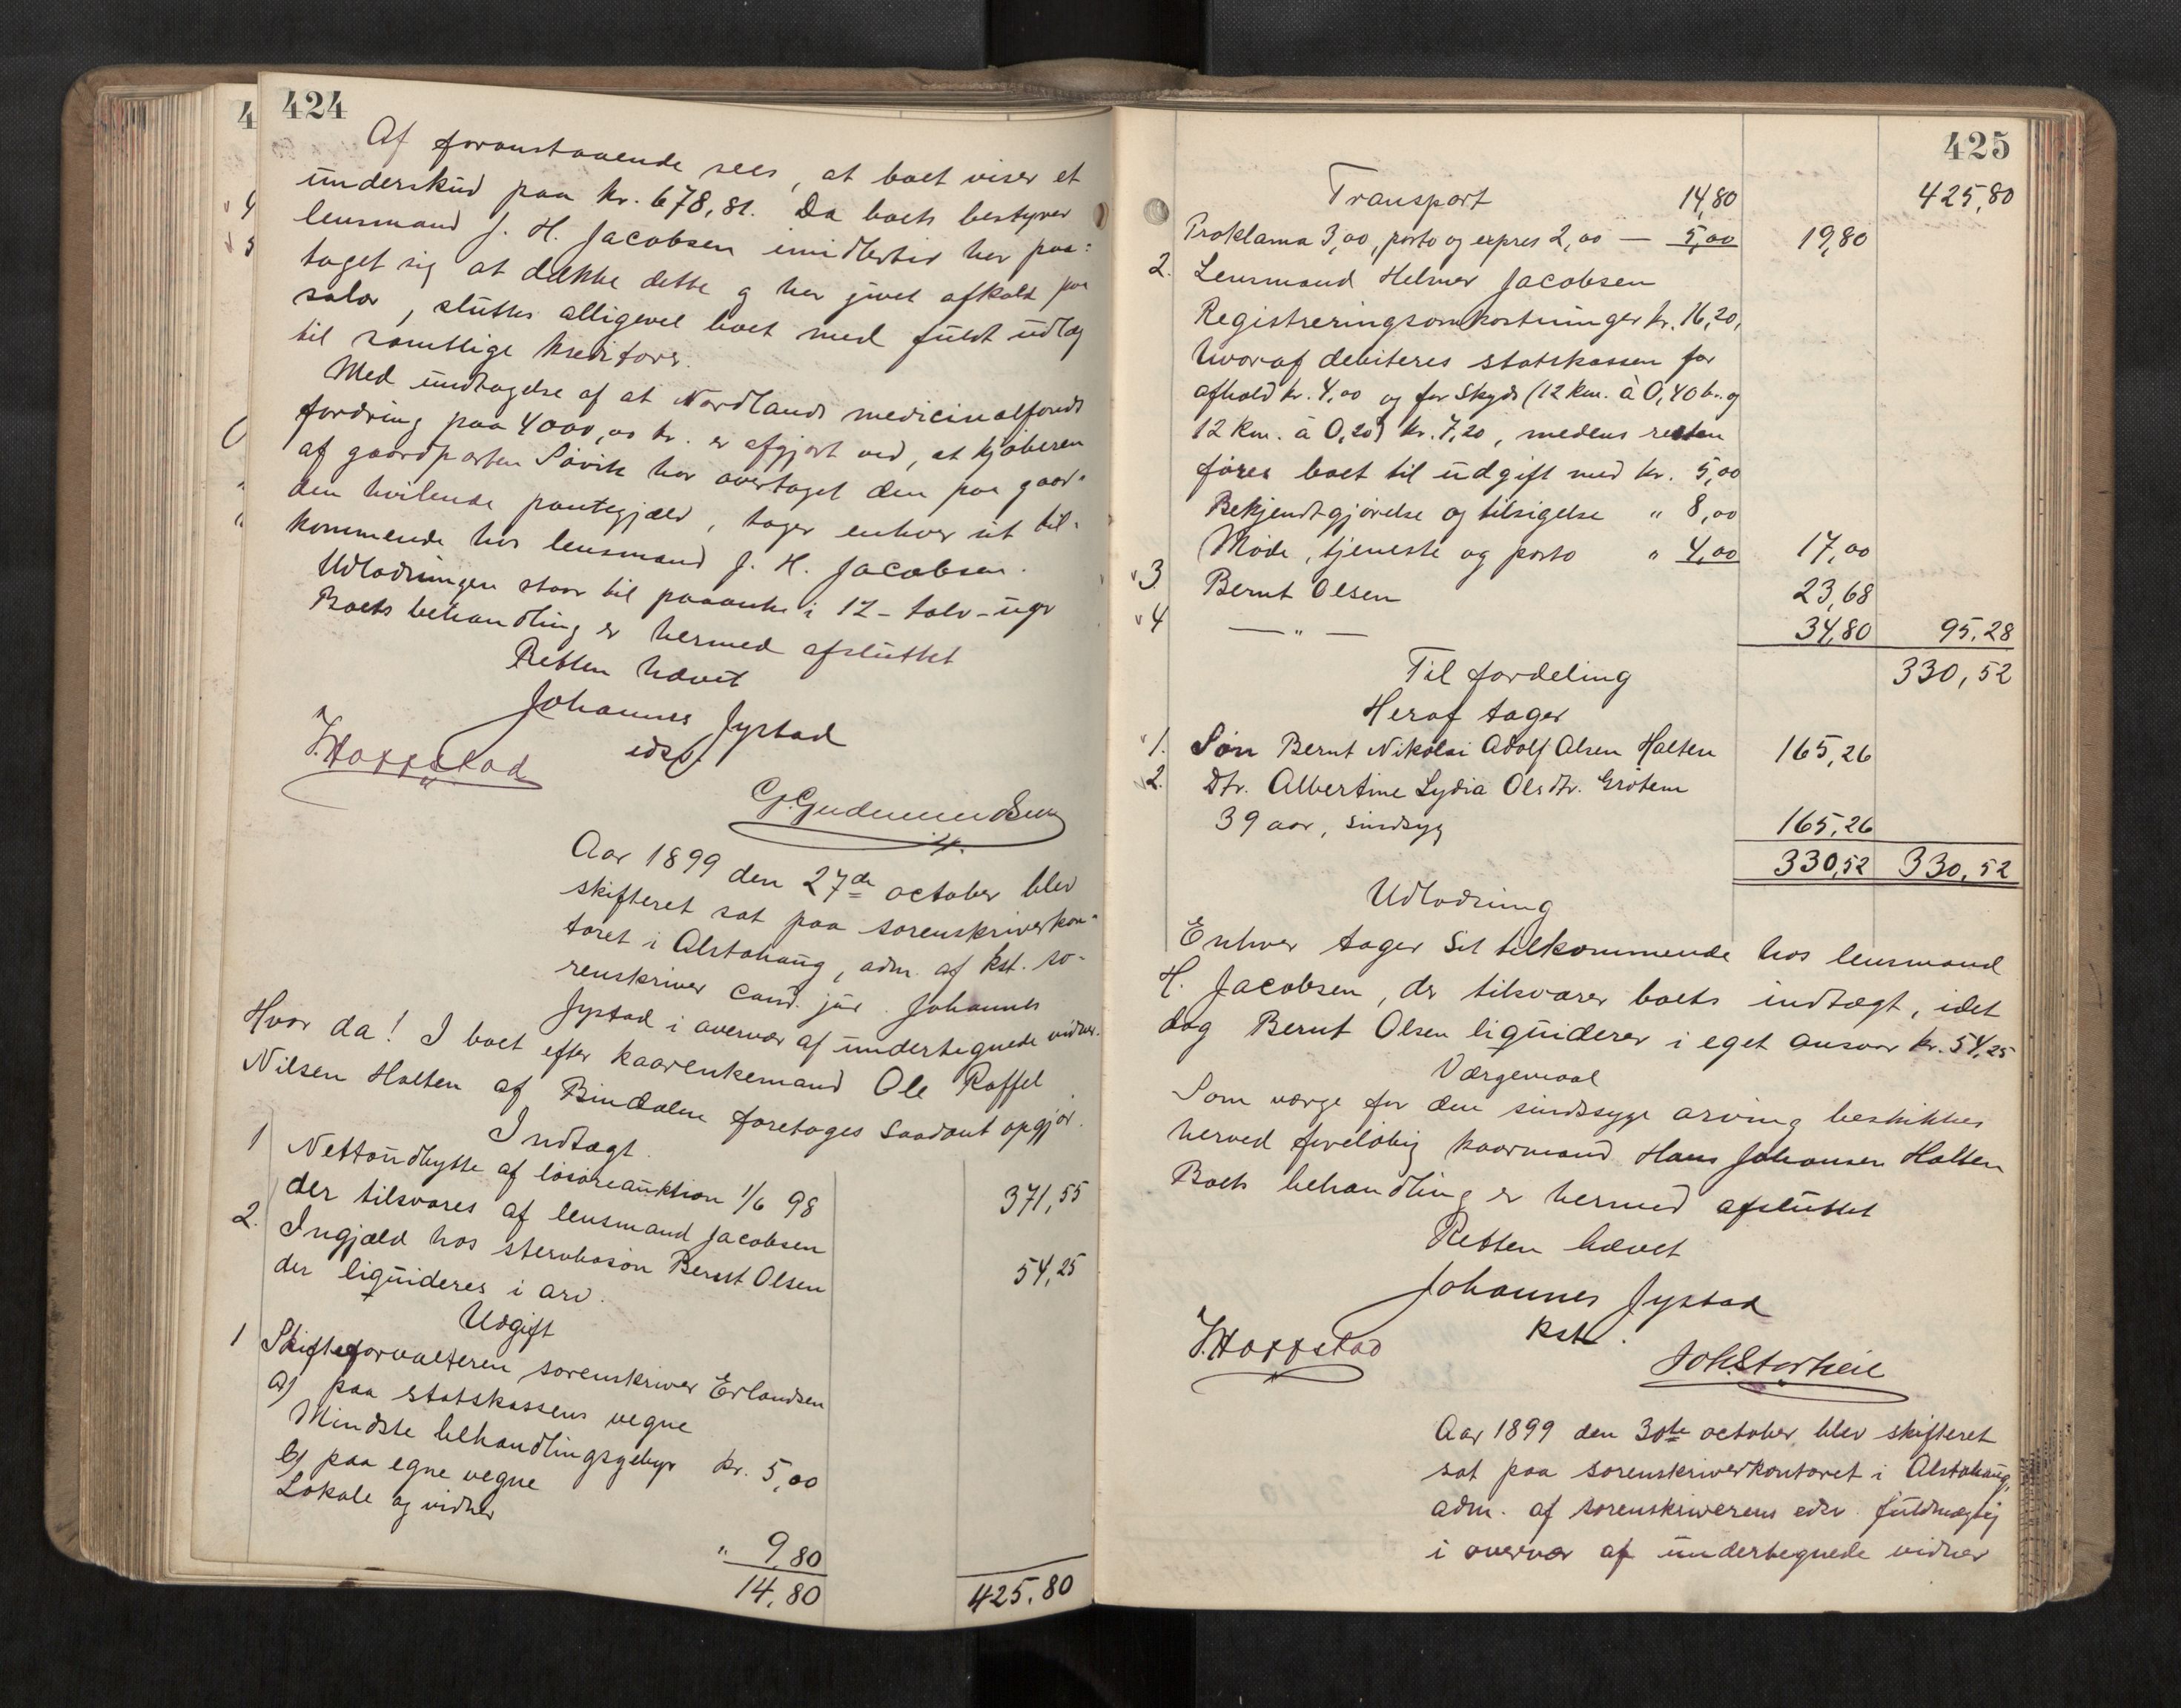 424
Af foranstaaende sees, at boet viser et
underskud paa kr. 678,81. Da boets bestyrer
lensmand J. H. Jacobsen imidlertid har paa=
taget sig at dække dette og har givet afkald paa
salær, sluttes alligevel boet med fuldt udlæg
til samtlige kreditorer.
Med undtagelse af at Nordlands medicinalfonds
fordring paa 4000,00 kr. er afgjort ved, at kjøberen
af gaardparten Søvik har overtaget den paa gaar=
den hvilende pantegjæld, tager enhver sit til=
kommende hos lensmand J. H. Jacobsen.
Udlodningen staar til paaanke i 12 - tolv - uger
Boets behandling er hermed afsluttet
Retten hævet
Johannes Jystad
edsv.
J. Hoffstad
G. Gudmundsen
Aar 1899 den 27de october blev
skifteret sat paa sorenskriverkon=
toret i Alstahaug, adm. af kst. so=
renskriver cand. jur. Johannes
Jystad i overvær af undertegnede vidner.
Hvor da! I boet efter kaarenkemand Ole Roffel
Nilsen Holten af Bindalen foretages saadant opgjør.
Indtægt.
1 Nettoudbytte af løsøreauktion 1/6 98
der tilsvares af lensmand Jacobsen 371,55
2. Ingjæld hos stervbosøn Bernt Olsen
der liquideres i arv. 54,25
Udgift
1 Skifteforvalteren sorenskriver Erlandsen
a) paa statskassens vegne
Mindste behandlingsgebyr kr. 5,00
b) paa egne vegne
Lokale og vidner " 9,80
14,80 425,80
425
Transport 14,80 425,80
Proklama 3,00, porto og expres 2,00 — 5,00 19,80
2. Lensmand Helmer Jacobsen
Registreringsomkostninger kr. 16,20,
hvoraf debiteres statskassen for
afhold kr. 4,00 og for Skyds (12 km. à 0,40 kr. og
12 km. à 0,20) kr. 7,20, medens resten
føres boet til udgift med kr. 5,00
Bekjendtgjørelse og tilsigelse " 8,00
Møde, tjeneste og porto " 4,00 17,00
3. Bernt Olsen 23,68
4 — " — 34,80 95,28
Til fordeling 330,52
Heraf tager
1. Søn Bernt Nikolai Adolf Olsen Holten 165,26
2. Dtr. Albertine Lydia Olsdtr. Grøtem
39 aar, sindsyg 165,26
330,52 330,52
Udlodning
Enhver tager sit tilkommende hos lensmand
H. Jacobsen, der tilsvarer boets indtægt, idet
dog Bernt Olsen liquiderer i eget ansvar kr. 54,25
Værgemaal
Som værge for den sindssyge arving beskikkes
herved foreløbig kaarmand Hans Johansen Holten
Boets behandling er hermed afsluttet
Retten hævet
Johannes Jystad
kst.
J. Hoffstad
Joh. Storheil
Aar 1899 den 30te october blev skifteret
sat paa sorenskriverkontoret i Alstahaug,
adm. af sorenskriverens edsv. fuldmægtig
i overvær af undertegnede vidner